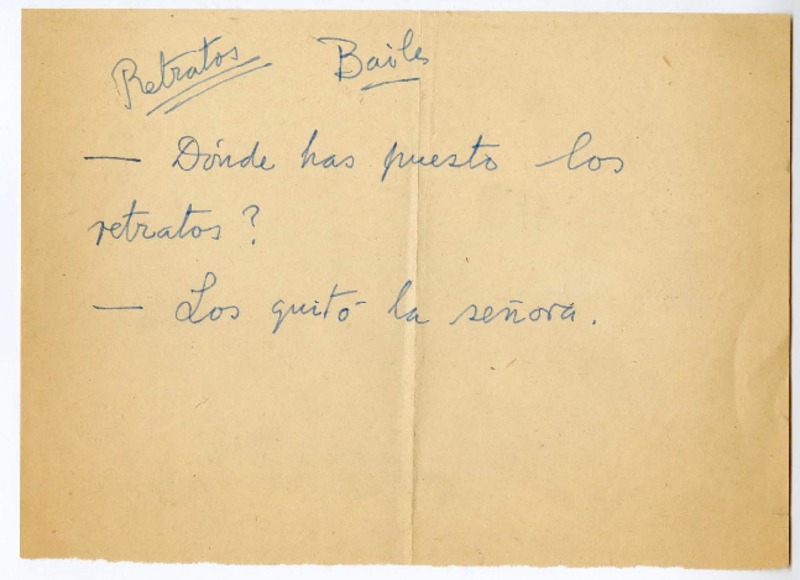 Retratos Bailes
— Dónde has puesto los
retratos?
— Los quitó la señora.